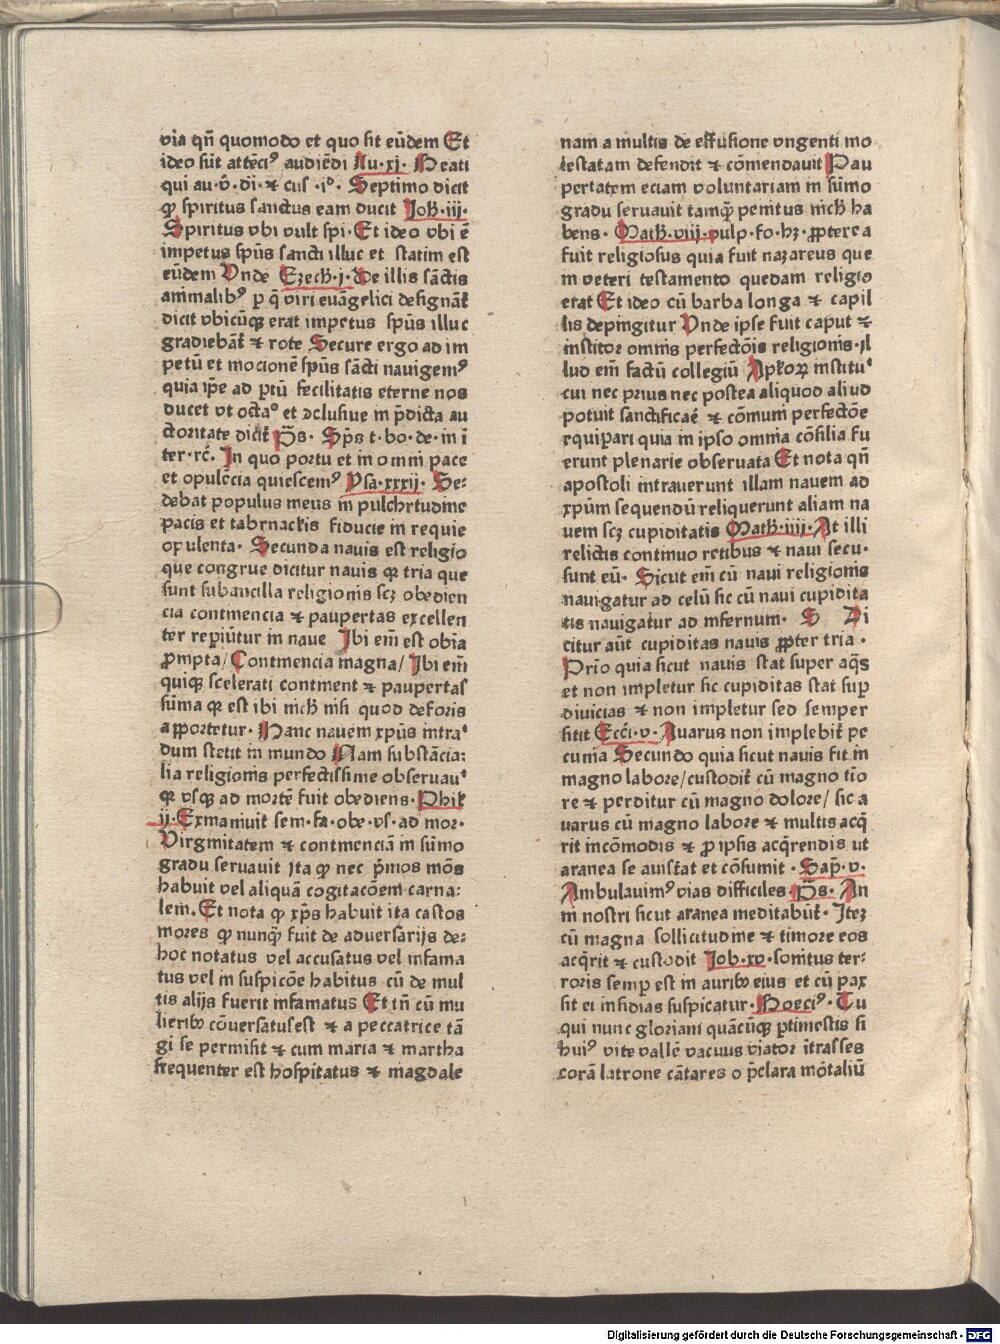 via qñ quomodo et quo sit eūdem Et
ideo sūt attēci⁹ audiēdi Lu·xj· Beati
qui au·v̄·di·⁊ cus ·i°· Septimo dicit
ꝙ spiritus sanctus eam ducit Joh̄·iij·
Spiritus vbi vult spi·Et ideo vbi ē
impetus spūs sancti illuc et statim est
eūdem Vnde Ezech̄·j·De illis sāctis
animalibꝰ p q̄ viri euāgelici designāt̄
dicit vbicūqꝫ erat impetus spūs illuc
gradiebāt̄ ⁊ rote Secure ergo ad im
petū et mocionē spūs sācti nauigem⁹
quia ip̄e ad ꝑtū fecilitatis eterne nos
ducet vt octa° et ↄclusiue in p̄dicta au
ctoritate dicit̄ p̄s· Sp̄s t·bo·de·in ī
ter·rc̄· In quo portu et in omni pace
et opulēcia quiescem⁹ Psa·xxxij· Se⸗
debat populus meus in pulchrtudine
pacis et tabrnaclis fiducie in requie
opulenta· Secunda nauis est religio
que congrue dicitur nauis qꝛ tria que
sunt subancilla religionis scꝫ obedien
cia continencia ⁊ paupertas excellen
ter repiūtur in naue Ibi em̄ est obīa
ꝓmpta/Continencia magna/Ibi em̄
quiqꝫ scelerati continent ⁊ paupertas
sūma qꝛ est ibi nich̄ nisi quod deforis
apportetur·Hanc nauem xpūs intra⸗
dum stetit in mundo Nam substācia⸗
lia religionis perfectissime obseruauᵗ
qꝛ vsqꝫ ad mortē fuit obediens·Phil̄
ij·Exinaniuit sem·fa·obe·vs·ad mor·
Virginitatem ⁊ continenciā in sūmo
gradu seruauit ita ꝙ nec p̄mos mōs
habuit vel aliquā cogitacōem carna⸗
lem.Et nota ꝙ xp̄s habuit ita castos
mores ꝙ nunqꝫ̄ fuit de aduersarijs de⸗
hoc notatus vel accusatus vel infama
tus vel in suspicōe habitus cū de mul
tis alijs fuerit infamatus Et tn̄ cū mu
lieribꝫ cōuersatus est ⁊ a peccatrice tā
gi se permisit ⁊ cum maria ⁊ martha
frequenter est hospitatus ⁊ magdale
nam a multis de effusione vngenti mo
lestatam defendit ⁊ cōmendauit Pau
pertatem eciam voluntariam in sūmo
gradu seruauit tamqꝫ̄ penitus nich̄ ha
bens· Math̄·viij·vulp·fo·hꝫ·ꝓpterea
fuit religiosus quia fuit nazareus que
in veteri testamento quedam religio
erat Et ideo cū barba longa ⁊ capil
lis depingitur Vnde ipse fuit caput ⁊
institor omnis perfectōis religionis·Il
lud em̄ factū collegiū Apl̄oꝝ instituᵗ
cui nec prius nec postea aliquod aliud
potuit sanctificaē ⁊ cōmuni perfectōe
equipari quia in ipso omnia cōsilia fu
erunt plenarie obseruata Et nota qñ
apostoli intrauerunt illam nauem ad
xpūm sequendū reliquerunt aliam na
uem scꝫ cupiditatis Math̄·iiij·At illi
relictis continuo retibus ⁊ naui secu·
sunt eū· Sicut em̄ cū naui religionis
nauigatur ad celū sic cū naui cupidita
tis nauigatur ad infernum· S Di
citur aūt cupiditas nauis ꝓpter tria·
Prīo quia sicut nauis stat super aq̄s
et non impletur sic cupiditas stat sup̄
diuicias ⁊ non impletur sed semper
sitit Ecci·v·Auarus non implebit̄ pe
cunia Secundo quia sicut nauis fit in
magno labore/custodit̄ cū magno tīo
re ⁊ perditur cū magno dolore/sic a
uarus cū magno labore ⁊ multis acq̄
rit incōmodis ⁊ ꝓ ipsis acq̄rendis ut
aranea se auisc̄at et cōsumit·Sap̄·v·
Ambulauim⁹ vias difficiles·p̄s· An
ni nostri sicut aranea meditabūt̄·Itē
cū magna sollicitudine ⁊ timore eos
acq̄rit ⁊ custodit Job·xv·sonitus ter⸗
roris semp̄ est in auribꝫ eius et cū pax
sit ei insidias suspicatur·Boeci⁹·Tu
qui nunc gloriani quācūqꝫ ꝑtimestis si
hui⁹ vite vallē vacuus viator ītrasses
corā latrone cātares o p̄clara mōtaliū
Digitalisierung gefördert durch die Deutsche Forschungsgemeinschaft - DFG